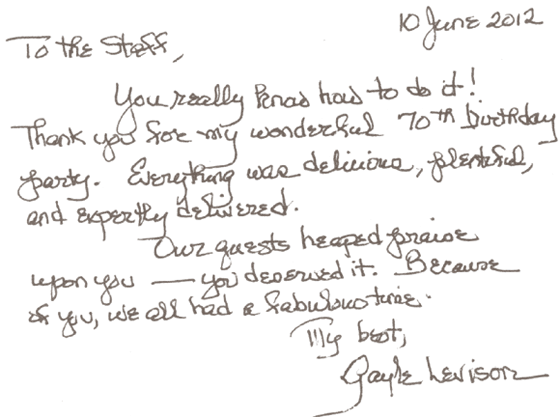 10 June 2012
To the Staff,
You really know how to do it!
Thank you for my wonderful 70th birthday
party. Everything was delicious, plentiful,
and expertly delivered.
Our guests heaped praise
upon you — you deserved it. Because
of you, we all had a fabulous time.
My best,
Gayle Levison